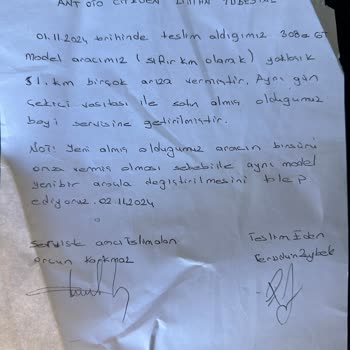 ANT OTO
01.11.2024 tarihinde teslim aldığımız 308 GT
Model aracımız (sıfır km olarak) yaklaşık
81. km birçok arıza vermiştir. Aynı gün
Çekici vasıtası ile satın almış olduğumuz
bayi servisine getirilmiştir.
NOT: Yeni almış olduğumuz aracın birsürü
arıza vermiş olması sebebiyle aynı model
yenibir araçla değiştirilmesini talep
ediyoruz. 02.11.2024
Serviste aracı Teslim alan
Teslim Eden
orcun korkmaz